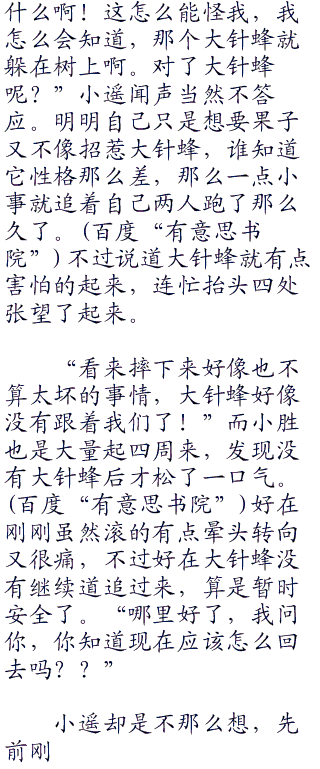 什么啊！这怎么能怪我，我
怎么会知道，那个大针蜂就
躲在树上啊。对了大针蜂
呢？”小遥闻声当然不答
应。明明自己只是想要果子
又不像招惹大针蜂，谁知道
它性格那么差，那么一点小
事就追着自己两人跑了那么
久了。(百度“有意思书
院”)不过说道大针蜂就有点
害怕的起来，连忙抬头四处
张望了起来。
“看来摔下来好像也不
算太坏的事情，大针蜂好像
没有跟着我们了！”而小胜
也是大量起四周来，发现没
有大针蜂后才松了一口气。
(百度“有意思书院”)好在
刚刚虽然滚的有点晕头转向
又很痛，不过好在大针蜂没
有继续道追过来，算是暂时
安全了。“哪里好了，我问
你，你知道现在应该怎么回
去吗？？”
小遥却是不那么想，先
前刚